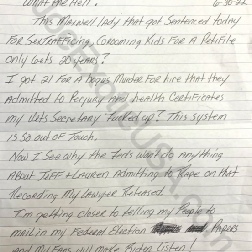 What the Hell. 6-30-22
This Maxwell lady that got sentenced today
For sextrafficing, Grooming Kids For A Petifile
only gets 20 years?
I got 21 For A bogus Murder For hire that they
Admitted to Perjury and health Certificates
my Vets Secretary Fucked up? This system
is so out of Touch.
Now I see why the Feds wont do anything
About Jeff + Lauren Admitting to Rape on that
Recording My Lawyer Released.
I'm getting closer to telling my People to
mail in my Federal Election Papers
and My Fans will make Biden Listen!